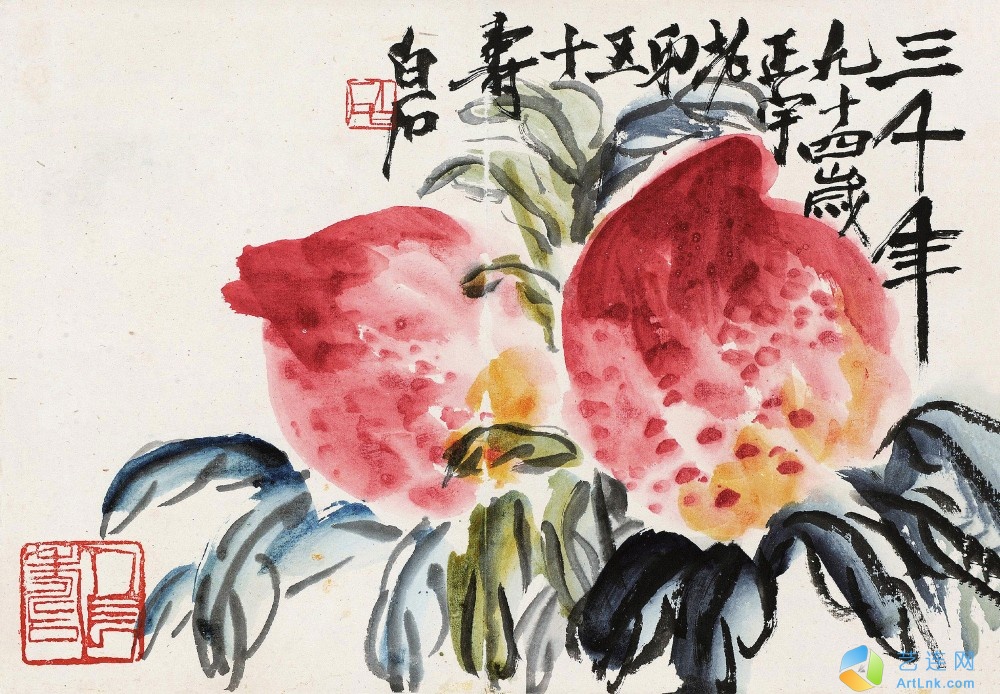 三千年
九十四歲
正宇
老
五
十
壽
白石
艺连网
ArtLnk.com